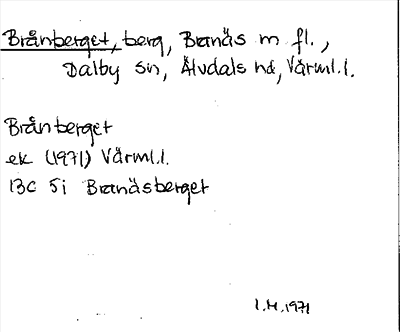 Brånberget, berg, Branäs m fl.,
Dalby sn, Älvdals hd, Värml.l.
Brånberget
ek (1971) Värml.l.
13C 5i Branäsberget
I.H.1971